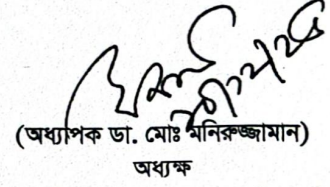 (অধ্যাপক ডা. মোঃ মনিরুজ্জামান)
অধ্যক্ষ